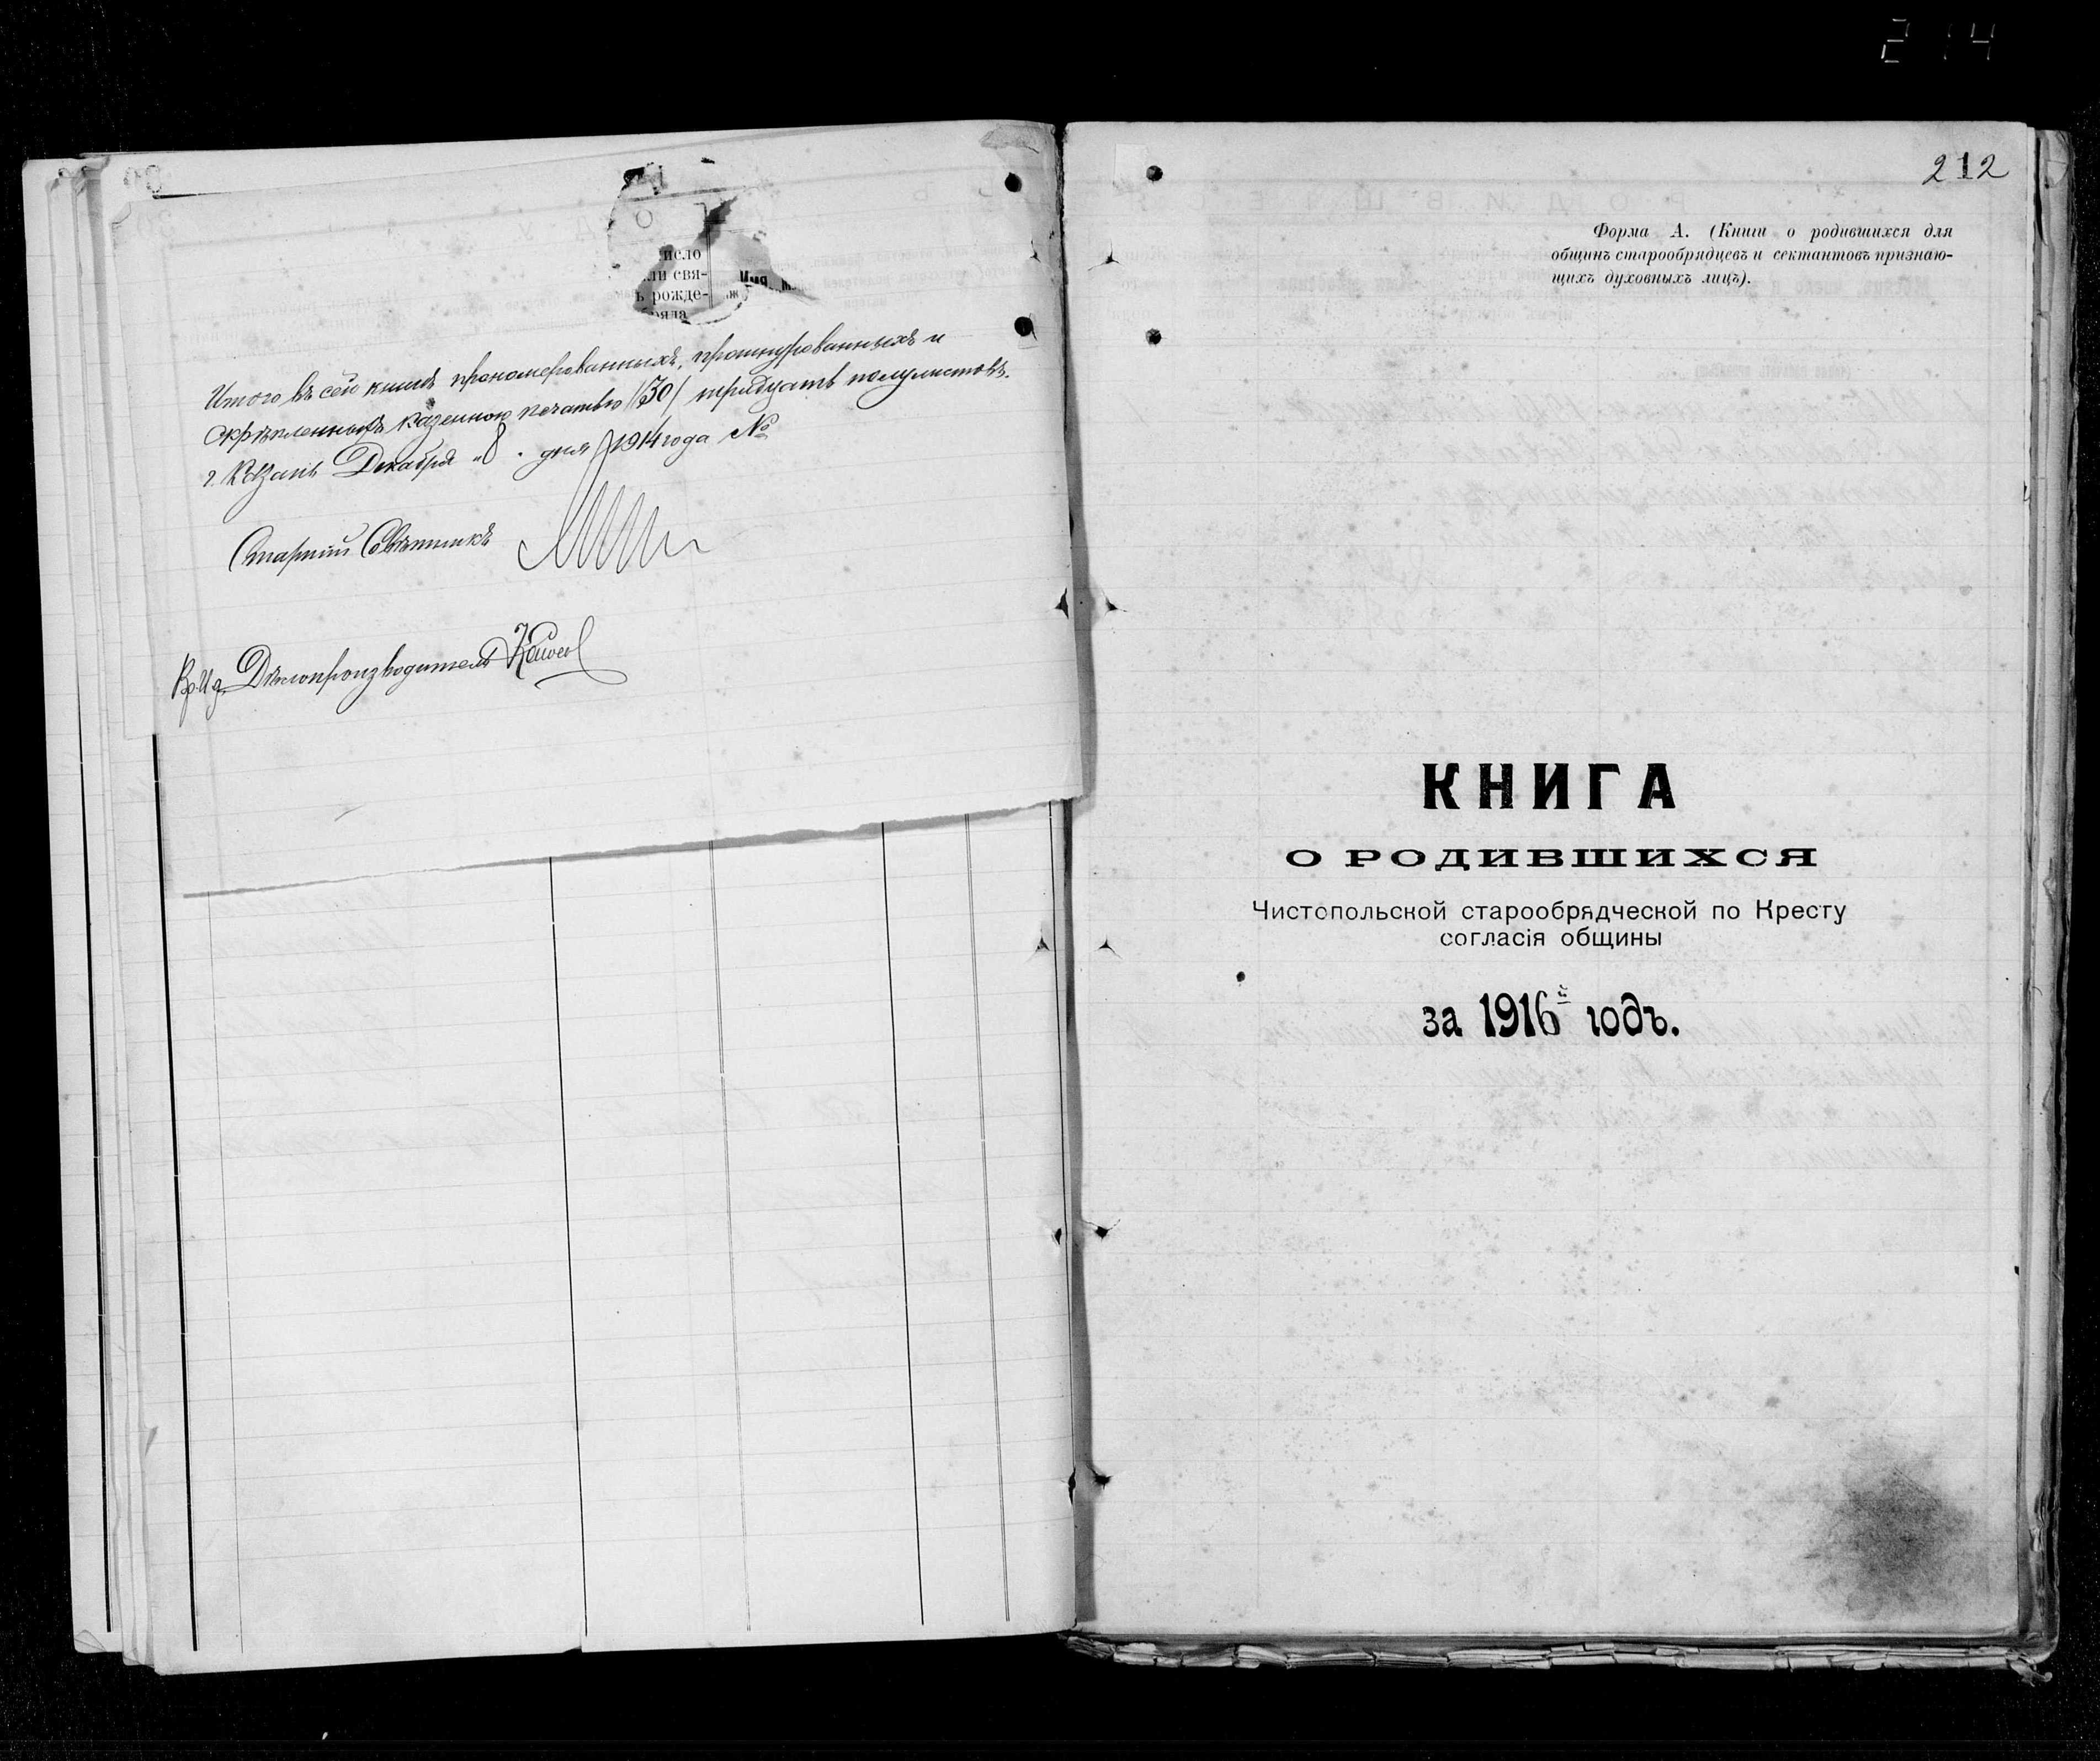 214
исло
ли свя-
ь рожде-
бряда
Имя
Итого въ сей книгѣ пронумерованныхъ, прошнурованныхъ и
скрѣпленныхъ казенною печатью /30/ тридцать полулистовъ.
г. Казань Декабря „8" дня 1914 года №
Старшій Совѣтникъ
Вр. И. д. Дѣлопроизводителя
212
Форма А. (Книги о родившихся для
общинъ старообрядцевъ и сектантовъ признаю-
щихъ духовныхъ лицъ).
КНИГА
О РОДИВШИХСЯ
Чистопольской старообрядческой по Кресту
согласія общины
за 1916й годъ.